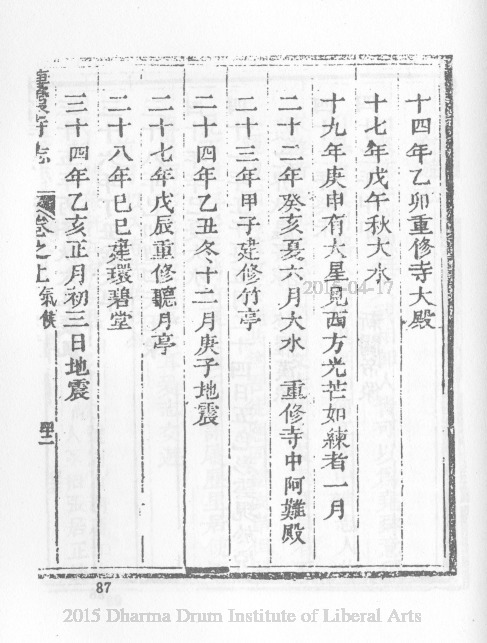 十四年乙卯重修寺大殿
十七年戊午秋大水
十九年庚申有大星見西方光芒如練者一月
二十二年癸亥夏六月大水　重修寺中阿難殿
二十三年甲子建修竹亭
二十四年乙丑冬十二月庚子地震
二十七年戊辰重修聽月亭
二十八年巳巳建環碧堂
三十四年乙亥正月初三日地震
寺志　卷之上　氣候
87
2015-04-17
2015 Dharma Drum Institute of Liberal Arts